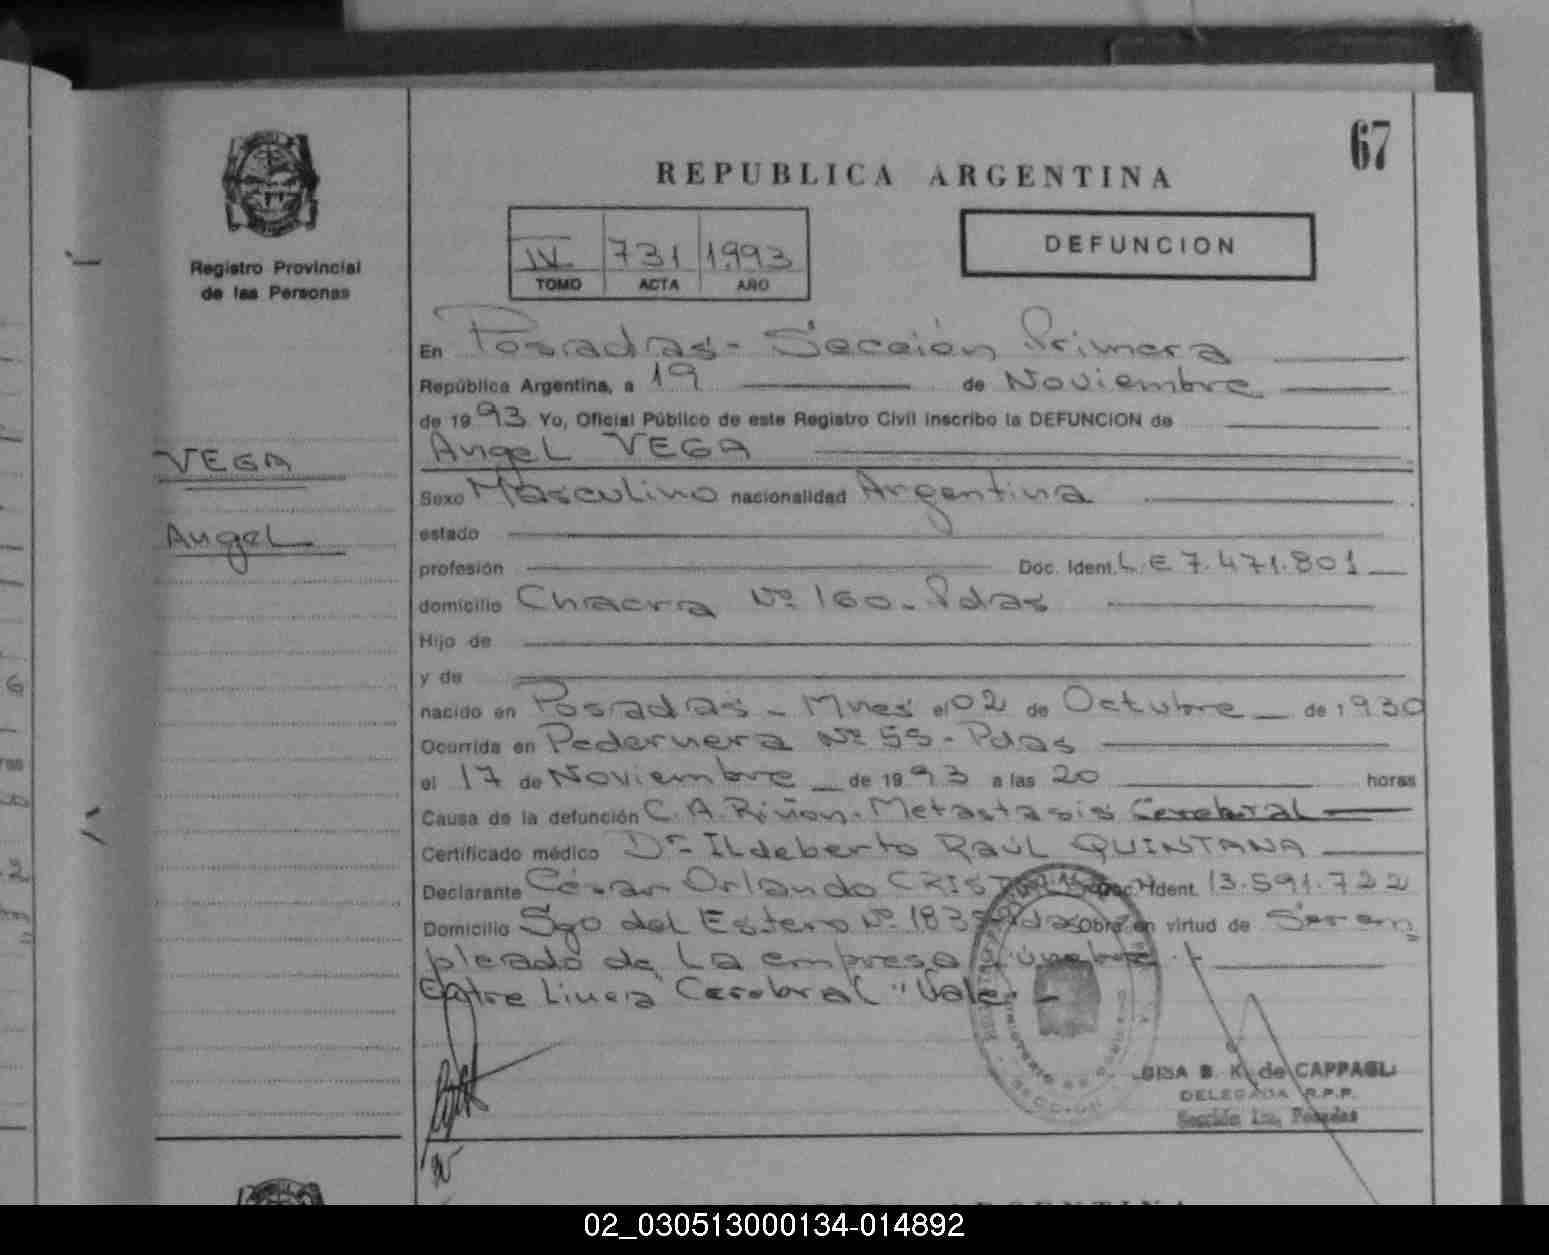 67
REPUBLICA ARGENTINA
Registro Provincial
de las Personas
IV 731 1993
TOMO ACTA AÑO
DEFUNCION
VEGA
Angel
En Posadas - Sección Primera
República Argentina, a 19 de Noviembre
de 1993 Yo, Oficial Público de este Registro Civil inscribo la DEFUNCION de
Angel VEGA
Sexo Masculino nacionalidad Argentina
estado
profesión Doc. Ident. L.E 7.471.801
domicilio Chacra Nº 160 - Pdas
Hijo de
y de
nacido en Posadas - Mnes el 02 de Octubre de 1930
Ocurrida en Pedernera Nº 55 - Pdas
el 17 de Noviembre de 1993 a las 20 horas
Causa de la defunción C.A. Riñon. Metastasis Cerebral
Certificado médico Dr. Ildeberto RAÚL QUINTANA
Declarante César Orlando Ident. 13.591.722
Domicilio Sgo del Estero Nº 183 Pdas Obra en virtud de Ser em
pleado de La empresa Fúnebre
Entre Linea "Cerebral" Vale -
B. K. de CAPPAGLI
DELEGADA R.P.P.
Sección 1ra, Posadas
02_030513000134-014892